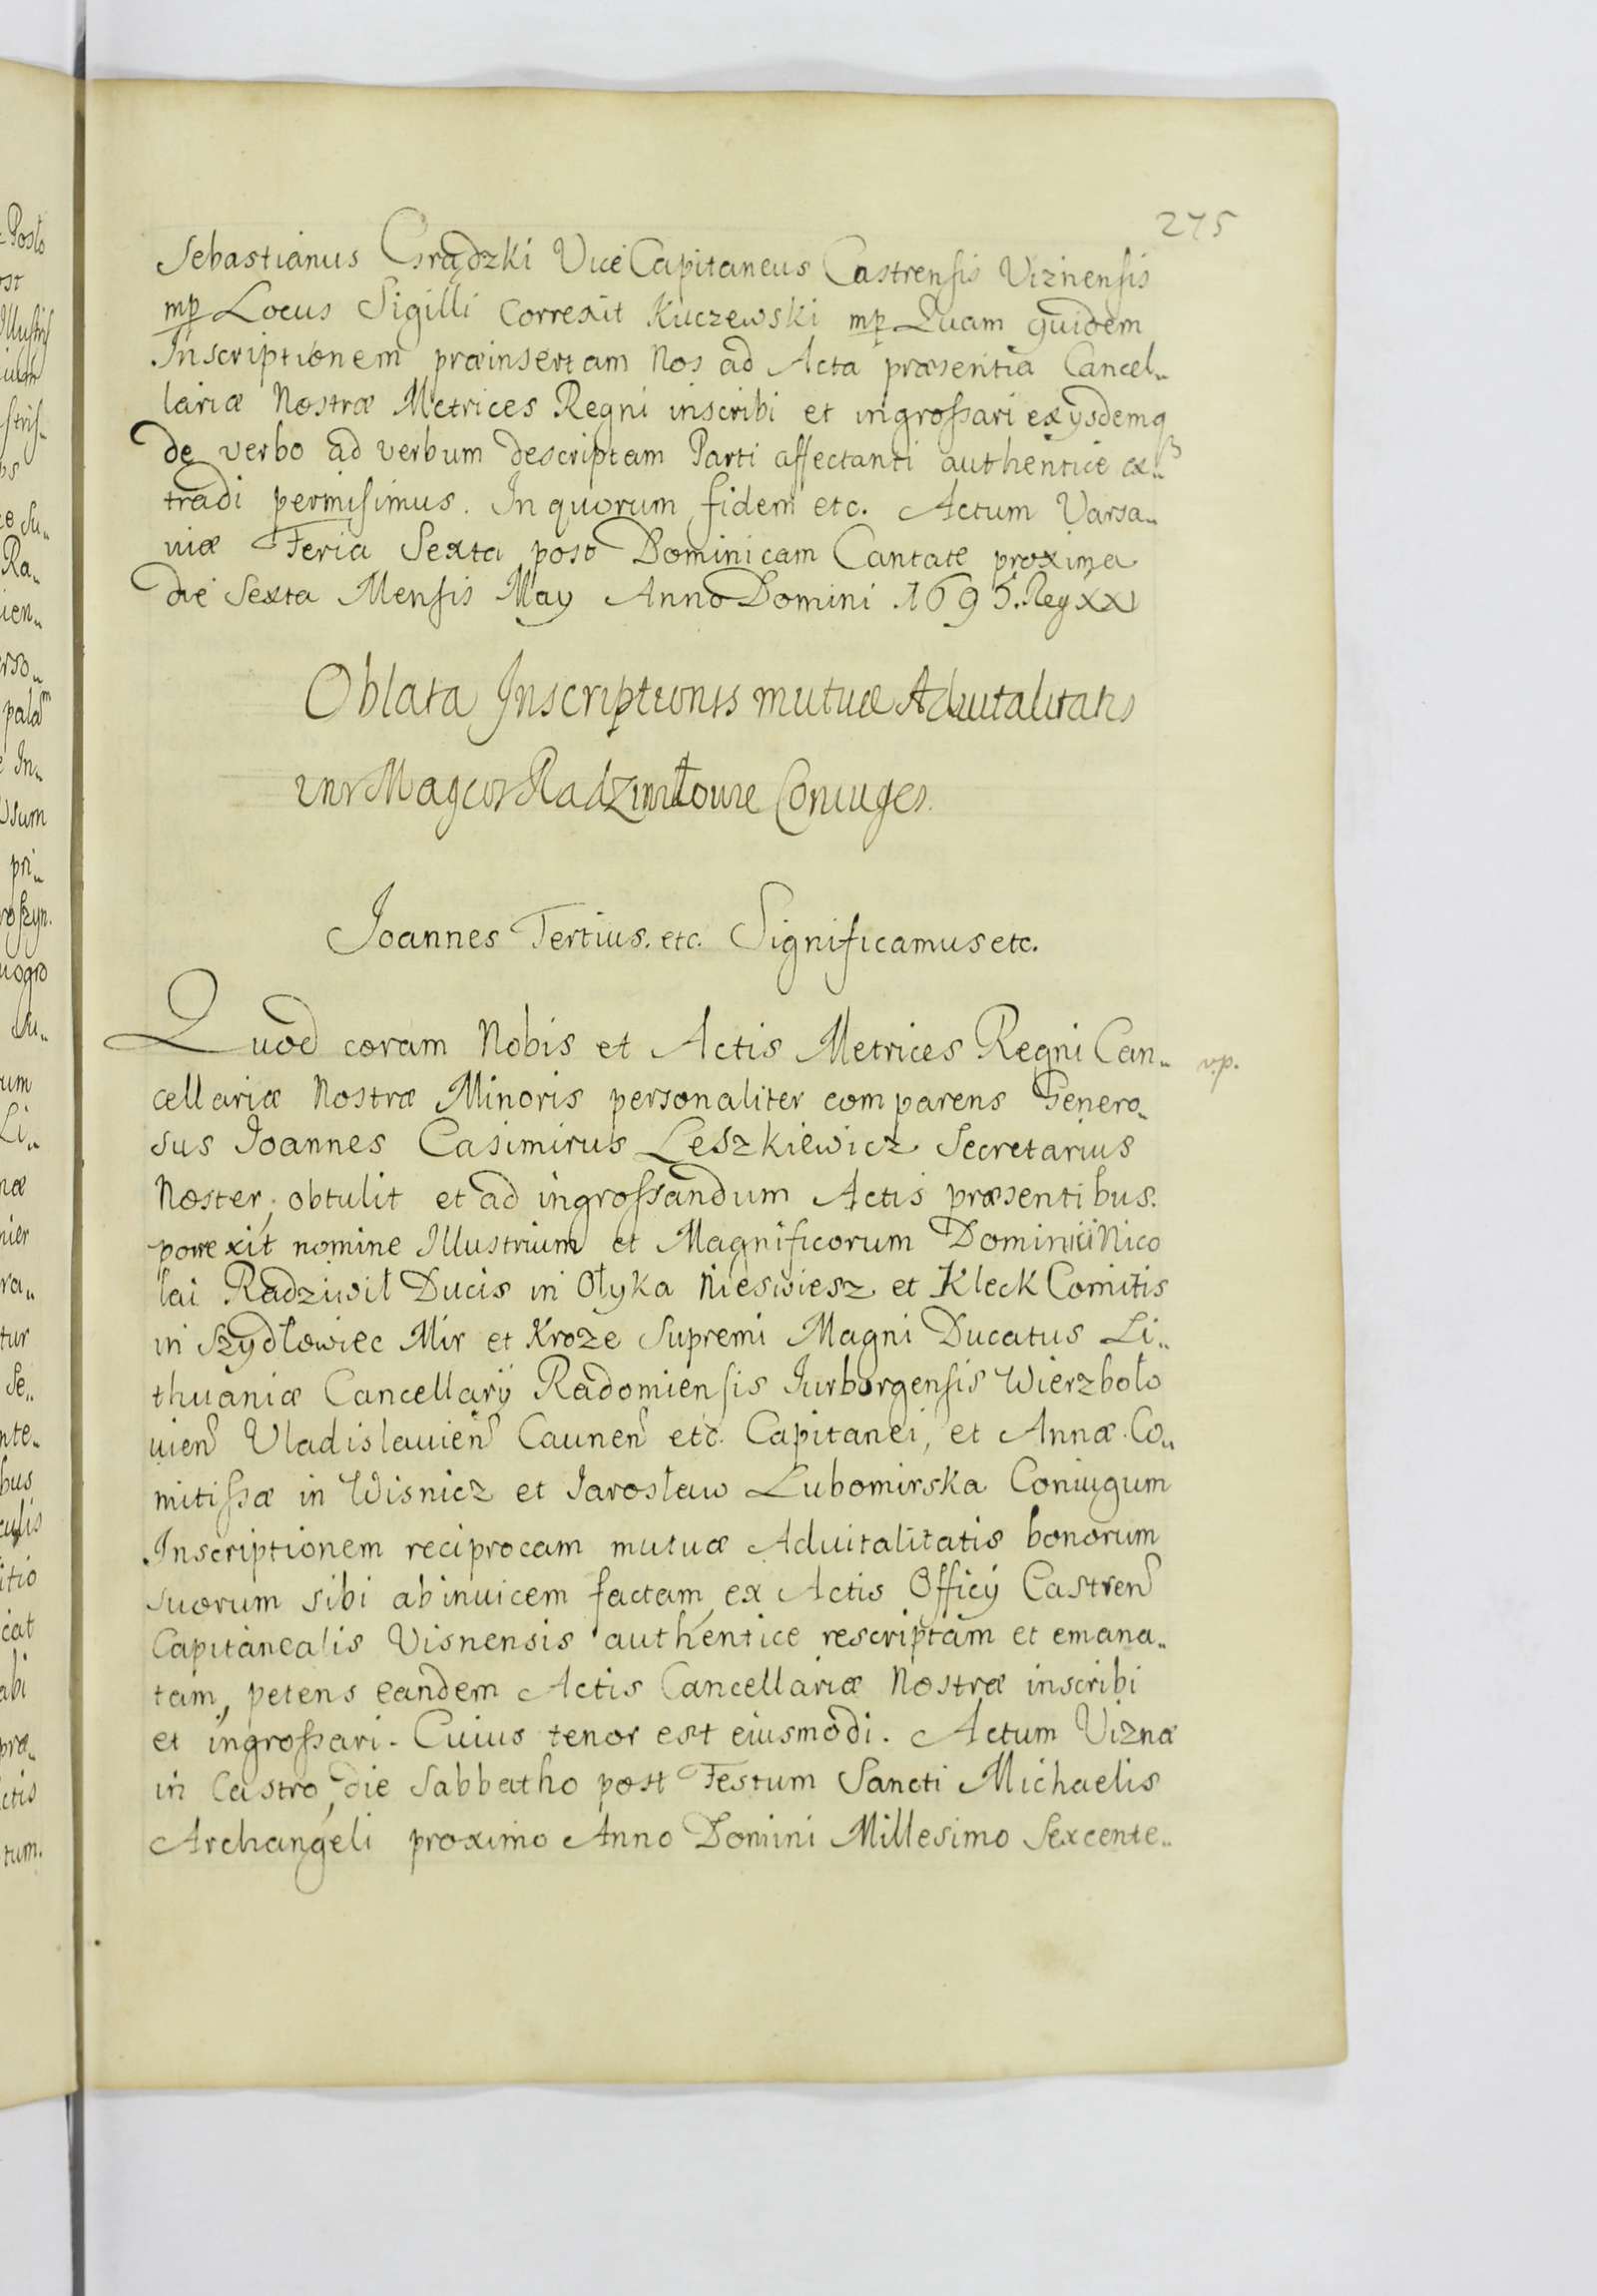 275
Sebastianus Grądzki Vice Capitaneus Castrensis Viznensis
mp Locus Sigilli Correxit Kuczewski mp Quam quidem
Inscriptionem præinsertam Nos ad Acta præsentia Cancel„
lariæ Nostræ Metrices Regni inscribi et ingrossari exijsdemq3
de verbo ad verbum descriptam Parti affectanti authentice ex„
tradi permisimus. In quorum fidem etc. Actum Varsa„
uiæ Feria Sexta post Dominicam Cantate proxima
die Sexta Mensis May Anno Domini 1695. Reg XXI
Oblata Inscriptionis mutuæ Aduitalitatis
intr Magcos Radziwiłowie Coniuges.
Joannes Tertius. etc. Significamus etc.
Quod coram Nobis et Actis Metrices Regni Can„
v.p.
cellariæ Nostræ Minoris personaliter comparens Genero„
sus Joannes Casimirus Leszkiewicz Secretarius
Noster, obtulit et ad ingrossandum Actis præsentibus.
porrexit nomine Illustrium et Magnificorum Dominici Nico
lai Radziwił Ducis in Ołyka Nieswiesz et Kleck Comitis
in Szydłowiec Mir et Kroze Supremi Magni Ducatus Li„
thuaniæ Cancellarij Radomiensis Iurborgensis Wierzboło
uien Vladislauien Caunen etc. Capitanei, et Annæ Co„
mitissæ in Wisnicz et Jarosław Lubomirska Coniugum
Inscriptionem reciprocam mutuæ Aduitalitatis bonorum
suorum sibi abinuicem factam, ex Actis Officij Castren
Capitanealis Visnensis authentice rescriptam et emana„
tam, petens eandem Actis Cancellariæ Nostræ inscribi
et ingrossari. Cuius tenor est eiusmodi. Actum Viznæ
in Castro, die Sabbatho post Festum Sancti Michaelis
Archangeli proximo Anno Domini Millesimo Sexcente„